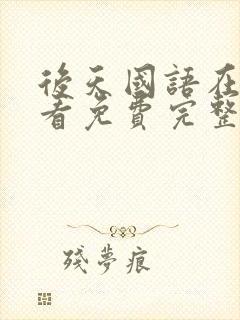 後天國語在
看免費完整
殘夢痕